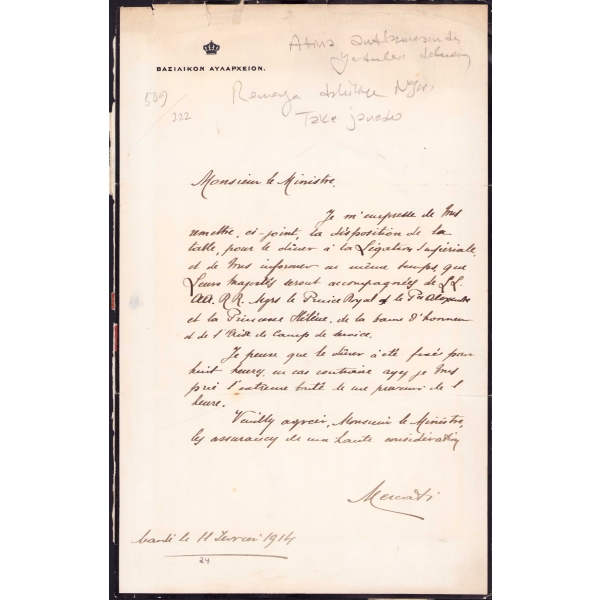 ΒΑΣΙΛΙΚΟΝ ΑΥΛΑΡΧΕΙΟΝ.
Atina
509
322
Romanya
Take
Monsieur le Ministre.
Je m'empresse de Vous
remettre, ci-joint, la disposition de la
table, pour le dîner à la Légation Impériale,
et de Vous informer en même temps, que
Leurs Majestés seront accompagnées de LL.
AA. RR. Mgrs le Prince Royal & le Pce Alexandre
et la Princesse Hélène, de la Dame d'honneur
et de l'Aide de Camp de service.
Je pense que le dîner a été fixé pour
huit heures, en cas contraire ayez je Vous
prie l'extrême bonté de me prévenir de l'
heure.
Veuillez agréer, Monsieur le Ministre,
les assurances de ma haute considération
Mercati
Mardi le 11 Février 1914
24